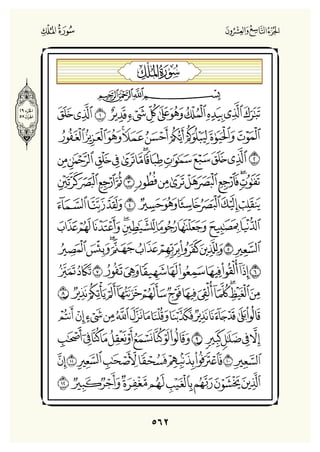 سُورَةُ المُلْكِ
الجُزْءُ التَّاسِعُ وَالعِشْرُونَ
سُورَةُ المُلْكِ
بِسْمِ اللَّهِ الرَّحْمَٰنِ الرَّحِيمِ
تَبَٰرَكَ ٱلَّذِى بِيَدِهِ ٱلْمُلْكُ وَهُوَ عَلَىٰ كُلِّ شَىْءٍ قَدِيرٌ ١ ٱلَّذِى خَلَقَ
ٱلْمَوْتَ وَٱلْحَيَوٰةَ لِيَبْلُوَكُمْ أَيُّكُمْ أَحْسَنُ عَمَلًا وَهُوَ ٱلْعَزِيزُ ٱلْغَفُورُ
٢ ٱلَّذِى خَلَقَ سَبْعَ سَمَٰوَٰتٍ طِبَاقًا مَّا تَرَىٰ فِى خَلْقِ ٱلرَّحْمَٰنِ مِن
تَفَٰوُتٍ فَٱرْجِعِ ٱلْبَصَرَ هَلْ تَرَىٰ مِن فُطُورٍ ٣ ثُمَّ ٱرْجِعِ ٱلْبَصَرَ كَرَّتَيْنِ
يَنقَلِبْ إِلَيْكَ ٱلْبَصَرُ خَاسِئًا وَهُوَ حَسِيرٌ ٤ وَلَقَدْ زَيَّنَّا ٱلسَّمَآءَ
ٱلدُّنْيَا بِمَصَٰبِيحَ وَجَعَلْنَٰهَا رُجُومًا لِّلشَّيَٰطِينِ وَأَعْتَدْنَا لَهُمْ عَذَابَ
ٱلسَّعِيرِ ٥ وَلِلَّذِينَ كَفَرُوا۟ بِرَبِّهِمْ عَذَابُ جَهَنَّمَ وَبِئْسَ ٱلْمَصِيرُ
٦ إِذَآ أُلْقُوا۟ فِيهَا سَمِعُوا۟ لَهَا شَهِيقًا وَهِىَ تَفُورُ ٧ تَكَادُ تَمَيَّزُ
مِنَ ٱلْغَيْظِ كُلَّمَآ أُلْقِىَ فِيهَا فَوْجٌ سَأَلَهُمْ خَزَنَتُهَآ أَلَمْ يَأْتِكُمْ نَذِيرٌ ٨
قَالُوا۟ بَلَىٰ قَدْ جَآءَنَا نَذِيرٌ فَكَذَّبْنَا وَقُلْنَا مَا نَزَّلَ ٱللَّهُ مِن شَىْءٍ إِنْ أَنتُمْ
إِلَّا فِى ضَلَٰلٍ كَبِيرٍ ٩ وَقَالُوا۟ لَوْ كُنَّا نَسْمَعُ أَوْ نَعْقِلُ مَا كُنَّا فِىٓ أَصْحَٰبِ
ٱلسَّعِيرِ ١٠ فَٱعْتَرَفُوا۟ بِذَنۢبِهِمْ فَسُحْقًا لِّأَصْحَٰبِ ٱلسَّعِيرِ ١١ إِنَّ
ٱلَّذِينَ يَخْشَوْنَ رَبَّهُم بِٱلْغَيْبِ لَهُم مَّغْفِرَةٌ وَأَجْرٌ كَبِيرٌ ١٢
٥٦٢